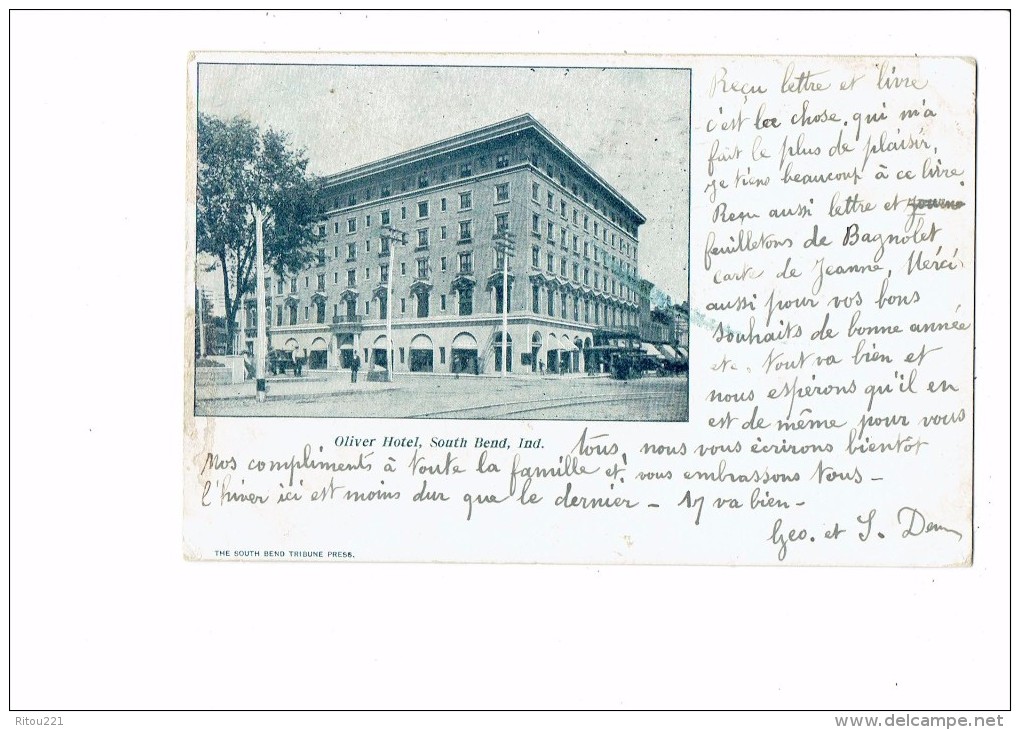 Reçu lettre et livre
c'est la chose, qui m'a
fait le plus de plaisir,
je tiens beaucoup à ce livre
Reçu aussi lettre et
feuilletons de Bagnolet
carte de Jeanne, Merci
aussi pour vos bons
souhaits de bonne année
etc. tout va bien et
nous espérons qu'il en
est de même pour vous
tous, nous vous écrirons bientôt
Oliver Hotel, South Bend, Ind.
Mos compliments à toute la famille et vous embrassons tous -
l'hiver ici est moins dur que le dernier - 17 va bien -
Geo. et S.
THE SOUTH BEND TRIBUNE PRESS.
Ritou221
www.delcampe.net